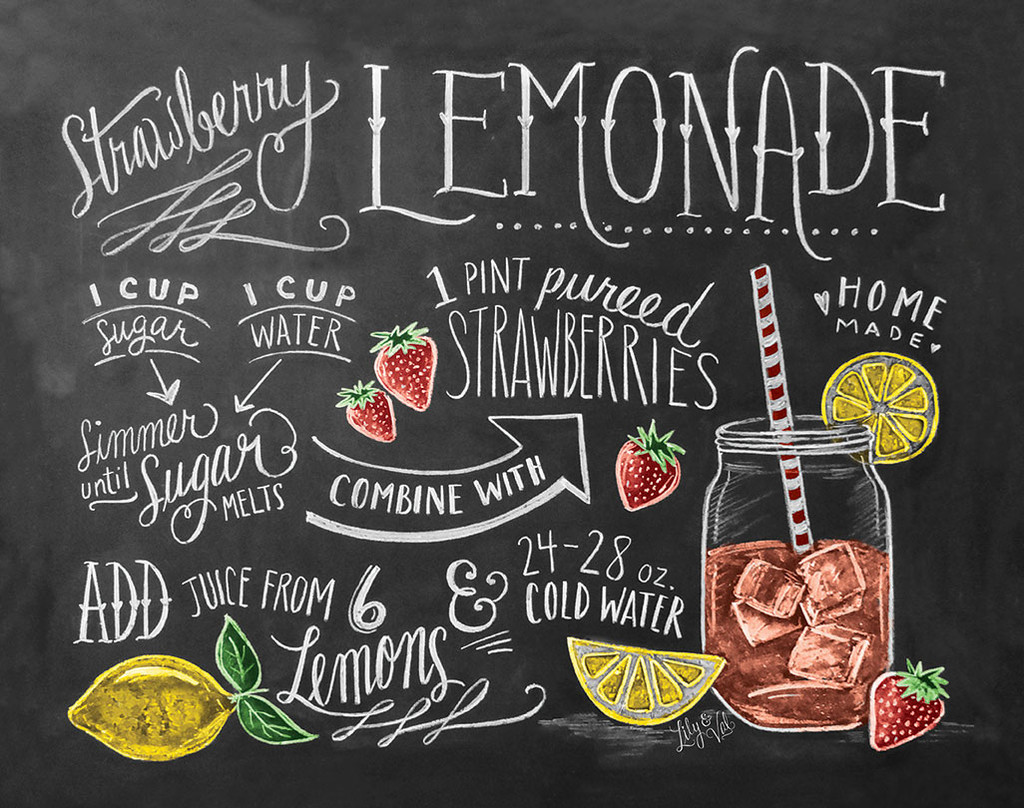 Strawberry LEMONADE
1 CUP
sugar
1 CUP
WATER
Simmer
until Sugar
MELTS
1 PINT pureed
STRAWBERRIES
COMBINE WITH
HOME
MADE
ADD JUICE FROM 6
Lemons
& 24-28 OZ.
COLD WATER
Lily & Val